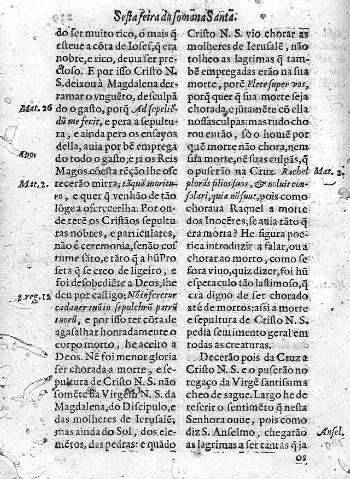 Sesta feira da somana Santa.
do ser muito rico, ó mais q̃
esteue a cõta de Iosef, q̃ era
nobre, e rico, deuia ser pre-
cioso. E por isso Cristo N.
S. deixou à Magdalena der-
ramar o vnguẽto, desculpã
Mat. 26
do o gasto, porq̃ Ad sepeliẽ-
dũ me fecit, e pera a sepultu-
ra, e ainda pera os ensayos
della, auia por bẽ emprega
do todo o gasto; e já os Reis
Magos cõ esta tẽção lhe ofe
Mat. 2.
recerão mirra; tãquã moritu-
ro, e quer q̃ venhão de tão
lõge a ofrecerlha. Por on-
de terẽ os Cristãos sepultu
ras nobres, e particulares,
não é ceremonia, senão cos
tume sãto, e tãto q̃ a hũ Pro
feta q̃ se creo de ligeiro, e
foi desobediẽte a Deos, lhe
3. reg. 12
deu por castigo; Nõ inferetur
cadauer tuũ in sepulchrũ patrũ
tuorũ, e por isso ter cõta de
agasalhar honradamente o
corpo morto, he aceito a
Deos. Nẽ foi menor gloria
ser chorada a morte, e se-
pultura de Cristo N. S. não
sómẽte da Virgẽ S. N. da
Magdalena, do Discipulo, e
das molheres de Ierusalẽ,
mas ainda do Sol, dos ele-
mẽtos, das pedras: e quãdo
Cristo N. S. vio chorar as
molheres de Ierusalẽ, não
tolheo as lagrimas q̃ tam-
bẽ empregadas erão na sua
morte, porẽ Flete super vos,
porq̃ quer q̃ sua morte seja
chorada, e jũtamẽte cõ ella
nossas culpas: mas tudo cho
rou então, só o homẽ por
quẽ morre não chora, nem
sua morte, nẽ suas culpas, q̃
o puserão na Cruz. Rachel
Mat. 2.
plorãs filios suos, & noluit con-
solari, quia nõ sunt, pois como
choraua Raquel a morte
dos Inocẽtes, se auia tãto q̃
era morta? He figura poe-
tica introduzir a falar, ou a
chorar ao morto, como se
fora viuo, quiz dizer, foi hũ
espectaculo tão lastimoso, q̃
era digno de ser chorado
até de mortos: assi a morte
e sepultura de Cristo N. S.
pedia sentimento geral em
todas as creaturas.
Decerão pois da Cruz a
Cristo N. S. e o puserão no
regaço da Virgẽ santissima
cheo de sague. Largo he de
referir o sentimẽto q̃ nesta
Senhora ouue, pois como
diz S. Anselmo, chegarão
Ansel.
as lagrimas a ser tantas q̃ ja
os